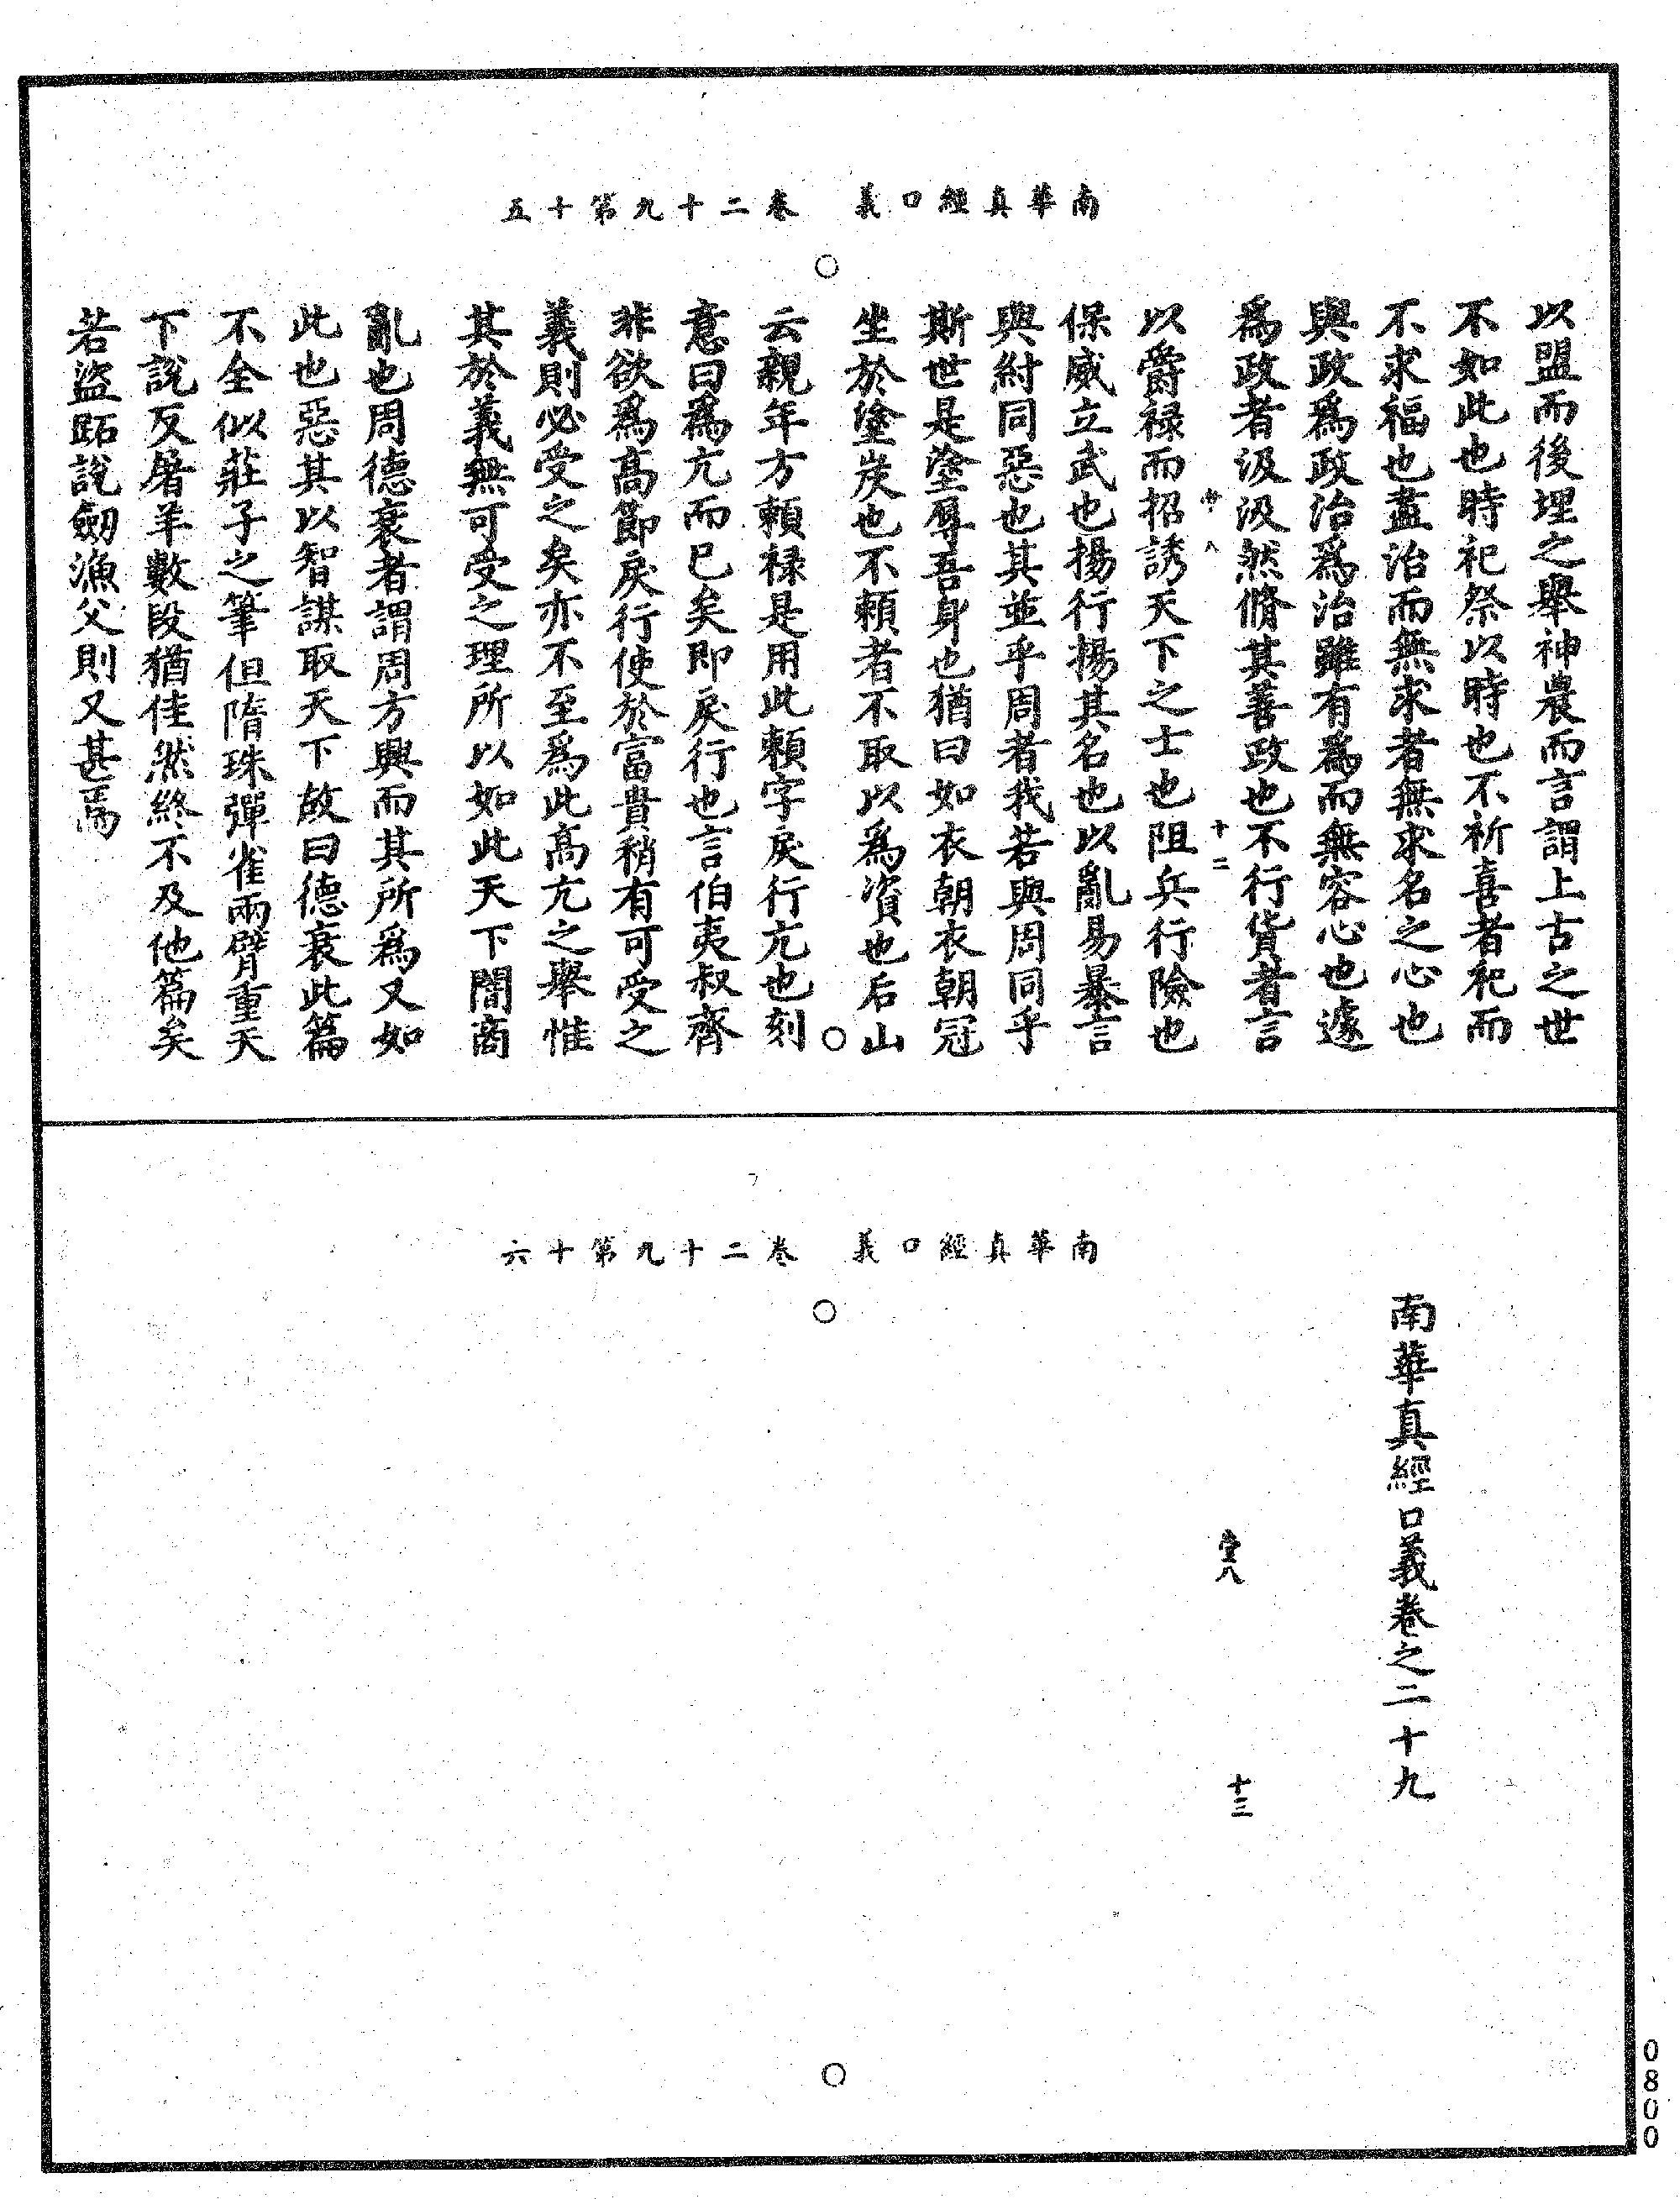 南華真經口義　卷二十九第十五
以盟而後埋之舉神農而言謂上古之世
不如此也時祀祭以時也不祈喜者祀而
不求福也盡治而無求者無求名之心也
與政為政治為治雖有為而無容心也遽
為政者汲汲然脩其善政也不行貨者言
以爵祿而招誘天下之士也阻兵行險也
十二
保威立武也揚行揚其名也以亂易暴言
與紂同惡也其並乎周者我若與周同乎
斯世是塗辱吾身也猶曰如衣朝衣朝冠
坐於塗炭也不賴者不取以為資也后山
云親年方賴祿是用此賴字戾行亢也刻
意曰為亢而已矣即戾行也言伯夷叔齊
非欲為高節戾行使於富貴稍有可受之
義則必受之矣亦不至為此高亢之舉惟
其於義無可受之理所以如此天下闇商
亂也周德衰者謂周方興而其所為又如
此也惡其以智謀取天下故曰德衰此篇
不全似莊子之筆但隋珠彈雀兩臂重天
下說反屠羊數段猶佳然終不及他篇矣
若盜跖說劒漁父則又甚焉
南華真經口義　卷二十九第十六
南華真經口義卷之二十九
八
十三
0800